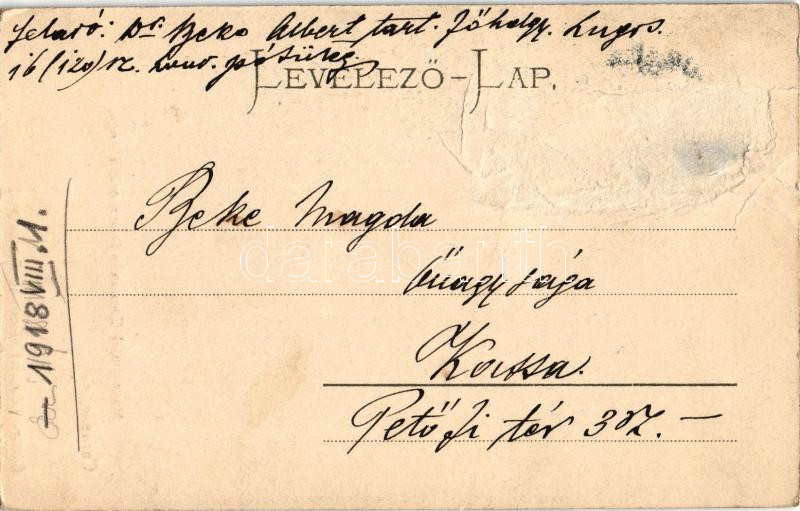 Feladó: Dr. Beke Albert tart. főhadgy. Lugos.
16 (120) sz. pótüteg
LEVELEZŐ-LAP.
Beke Magda
Őnagysága
Kassa.
Petőfi tér 3 sz. —
1918 VIII 11.
darabanth